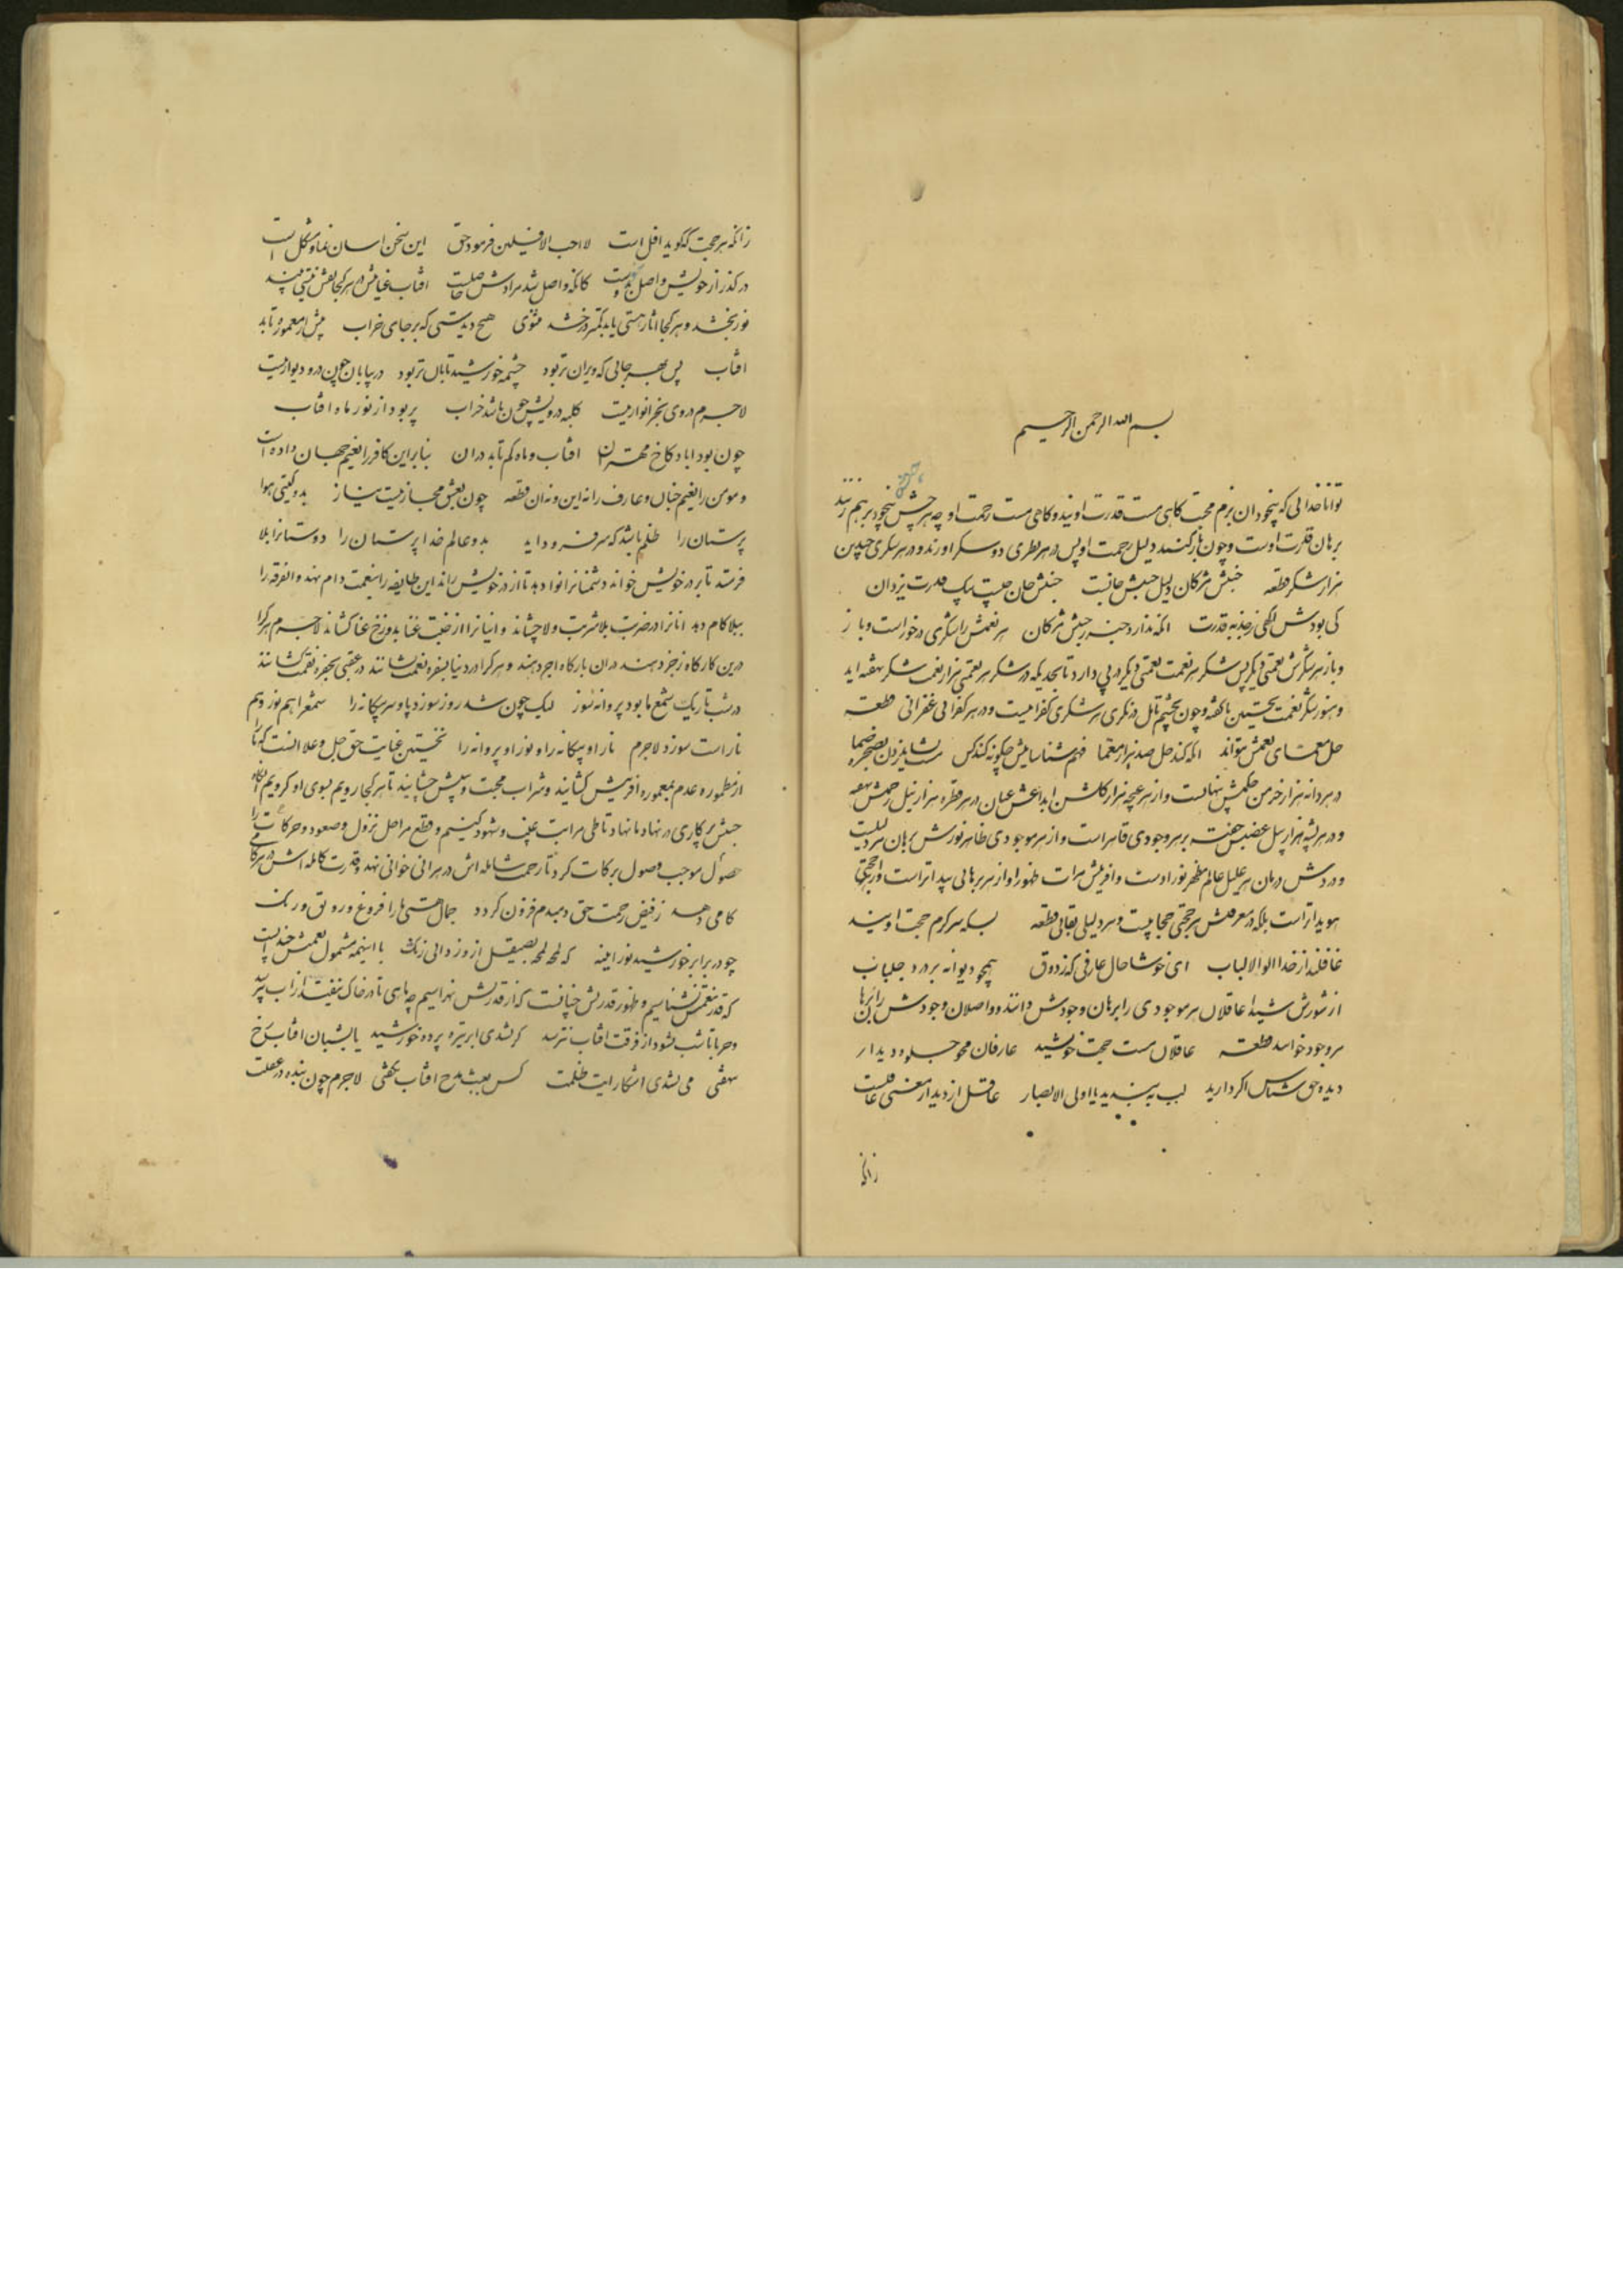 بسم الله الرحمن الرحیم
توانا خدائی که بیخودان بزم محبت کاهی مست قدرت اویند و کاهی مست رحمت او چه هر چشم بیخود برهم زنند
برهان قدرت اوست و چون باز کنند دلیل رحمت او پس در هر نظری دو شکر اورند و در هر شکری چندین
هزار شکر قطعه جنبش مژکان دلیل جنبش جانست جنبش جان چیست پیک قدرت یزدان
کی بودش اکهی ز جذبه قدرت انکه ندارد خبر ز جنبش مژکان هر نعمتش را شکری درخور است و باز
و باز هر شکرش نعمتی دیکر پس شکر هر نعمت نعمتی دیکر در پی دارد تا بحدیکه در شکر هر نعمتی هزار نعمت شکر نهفته اید
و هنوز شکر نعمت نخستین ناکفته و چون بچشم تامل در نکری هر شکری کفرانیست و در هر کفرانی غفرانی قطعه
حل معمای نعمتش نتواند انکه کند حل صد هزار معما فهم شناسایش چکونه کند کس
در هر دانه هزار خرمن حکمتش پنهانست و از هر غنچه هزار کلشن ابداعش عیان در هر قطره هزار نیل رحمتش نهفته
و در هر پشه هزار پیل غضبش خفته بر هر وجودی قاهر است و از هر موجودی ظاهر نورش برهان هر دلیلیست
و دردش درمان هر علیل عالم مظهر نور اوست و افرینش مرات ظهور او از هر برهانی پیداتر است و از هر حجتی
هویداتر است بلکه در معرفتش هر حجتی حجابیست و هر دلیلی نقابی قطعه بسکه سر کرم حجت اویند
غافلند از خدا اولوالالباب ای خوشا حال عارفی که ز ذوق همچو دیوانه بر درد جلباب
از شورش شیدا عاقلان هر موجودی را برهان وجودش دانند و واصلان وجودش را برهان
هر وجود خوانند قطعه عاقلان مست حجت خویشند عارفان محو جلوه دیدار
دیده حق شناس اکر دارید لب ببندید یا اولی الابصار عاقل از دیدار معنی غافلست
زانکه
زانکه هر حجت که کوید افل است لا احب الافلین فرمود حق این سخن اسان نما و مشکل است
در کذر از خویش و واصل شو بدوست کانکه واصل شد مرادش حاصلست افتاب عنایتش در هر کجا نقش نیستی بیند
نور بخشد و هر کجا اثار هستی یابد کمتر درخشد مثنوی هیچ دیدستی که بر جای خراب بیش از معموره تابد
افتاب پس بهر جائی که ویران تر بود چشمه خورشید تابان تر بود در بیابان چون در و دیوار نیست
لاجرم در وی بجز انوار نیست کلبه درویش چون باشد خراب پر بود از نور ماه افتاب
چون بود اباد کاخ مهتران افتاب و ماه کم تابد در ان بنابراین کافر را نعیم جهان داده است
و مومن را نعیم جنان و عارف را نه این و نه ان قطعه چون بعشق مجاز نیست نیاز بدو کیتی هوا
پرستان را ظلم باشد که سر فرود اید بدو عالم خدا پرستان را دوستانرا بلا
فرستد تا بر در خویش خواند و دشمنانرا نوا دهد تا از در خویش راند این طایفه را بنعمت دام نهد و انفرقه را
ببلا کام دهد انانرا در ضربت بلا شربت ولا چشاند و اینانرا از جنت غنا بدوزخ عنا کشاند لاجرم هر کرا
درین کارکاه زجر دهند در ان بارکاه اجر دهند و هر کرا در دنیا بسفره نعمت نشانند در عقبی بحفره نقمت کشانند
در شب تاریک شمع ما بود پروانه سوز لیک چون شد روز سوزد پا و سر بیکانه را شمع را هم نور و هم
نار است سوزد لاجرم نار او بیکانه را و نور او پروانه را نخستین عنایت حق جل و علا انست که ما را
از مطموره عدم بمعموره افرینش کشانید و شراب محبت خویش چشانید تا هر کجا رویم بسوی او کرویم انکاه
جنبش پرکاری در نهاد ما نهاد تا طی مراتب غیب و شهود کنیم و قطع مراحل نزول و صعود و حرکات را
حصول موجب وصول برکات کرد تا رحمت شامله اش در هر انی خوانی نهد و قدرت کامله اش در هر کامی
کامی دهد ز فیض رحمت حق دمبدم فزون کردد جمال هستی ما را فروغ و رونق و رنک
چو در برابر خورشید نور ایینه که لمحه لمحه بصیقل ازو زدائی زنک با اینهمه مشمول نعمتش
که قدر نعمتش نشناسیم و ظهور قدرتش چنانست که از قدرتش نهراسیم چه ماهی تا در خاک نیفتد از اب
و حربا تا شب نشود از فرقت افتاب نترسد کر نشدی ابر تیره پرده خورشید یا بشبان افتاب رخ
نهفتی می نشدی اشکار ایت ظلمت کس بشب مدح افتاب نکفتی لاجرم چون بنده در غفلت